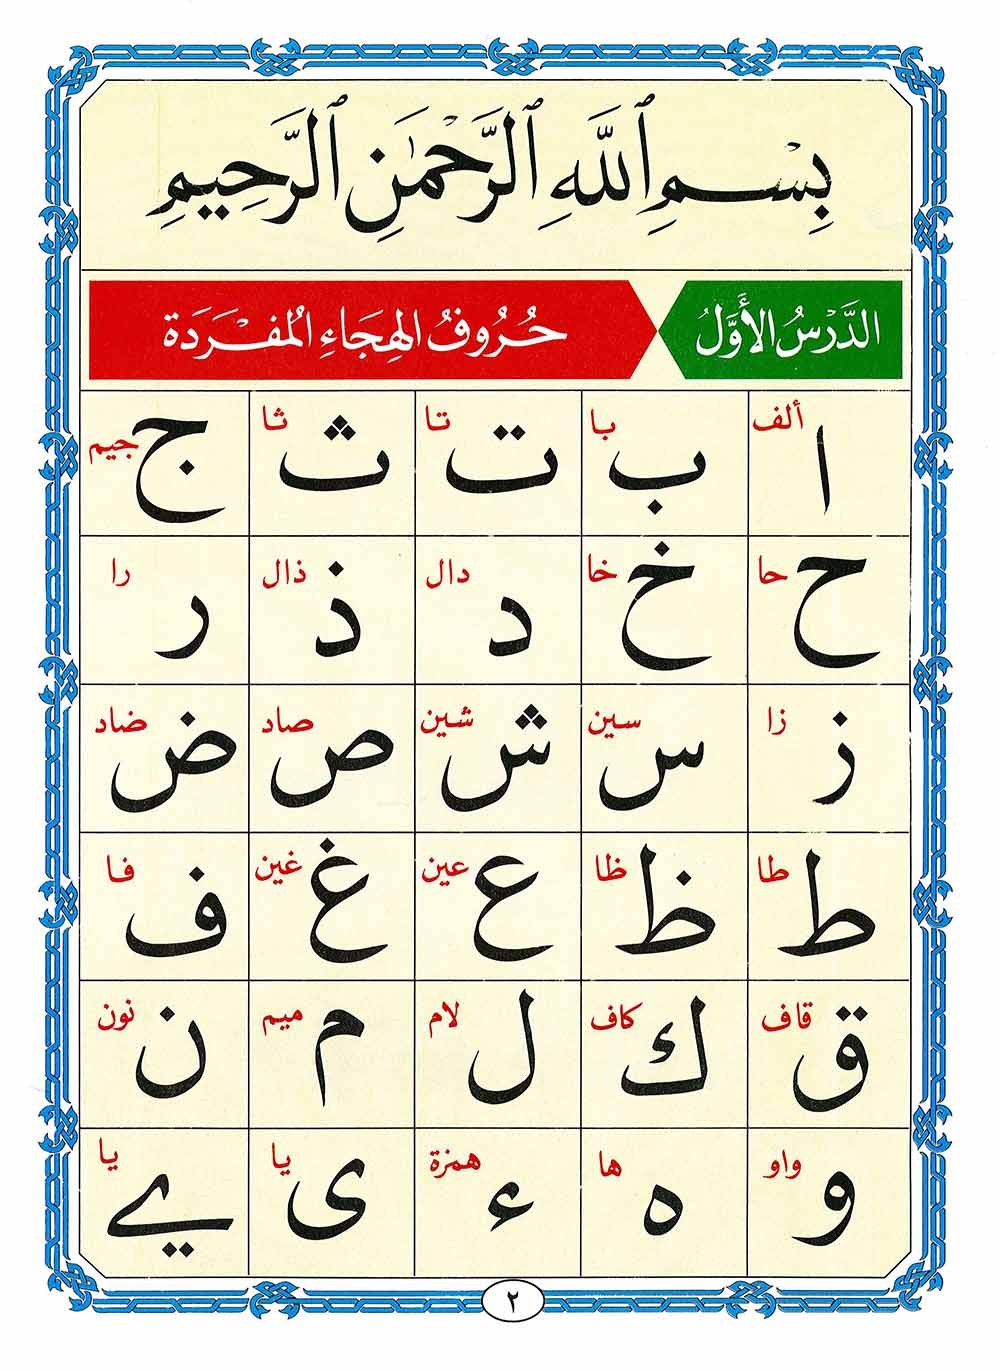 بِسْمِ ٱللَّهِ ٱلرَّحْمَٰنِ ٱلرَّحِيمِ
الدَّرْسُ الأَوَّلُ حُرُوفُ الهِجَاءِ المُفْرَدَة
ا ألف ب با ت تا ث ثا ج جيم
ح حا خ خا د دال ذ ذال ر را
ز زا س سين ش شين ص صاد ض ضاد
ط طا ظ ظا ع عين غ غين ف فا
ق قاف ك كاف ل لام م ميم ن نون
و واو ه ها ء همزة ى يا ے يا
٢